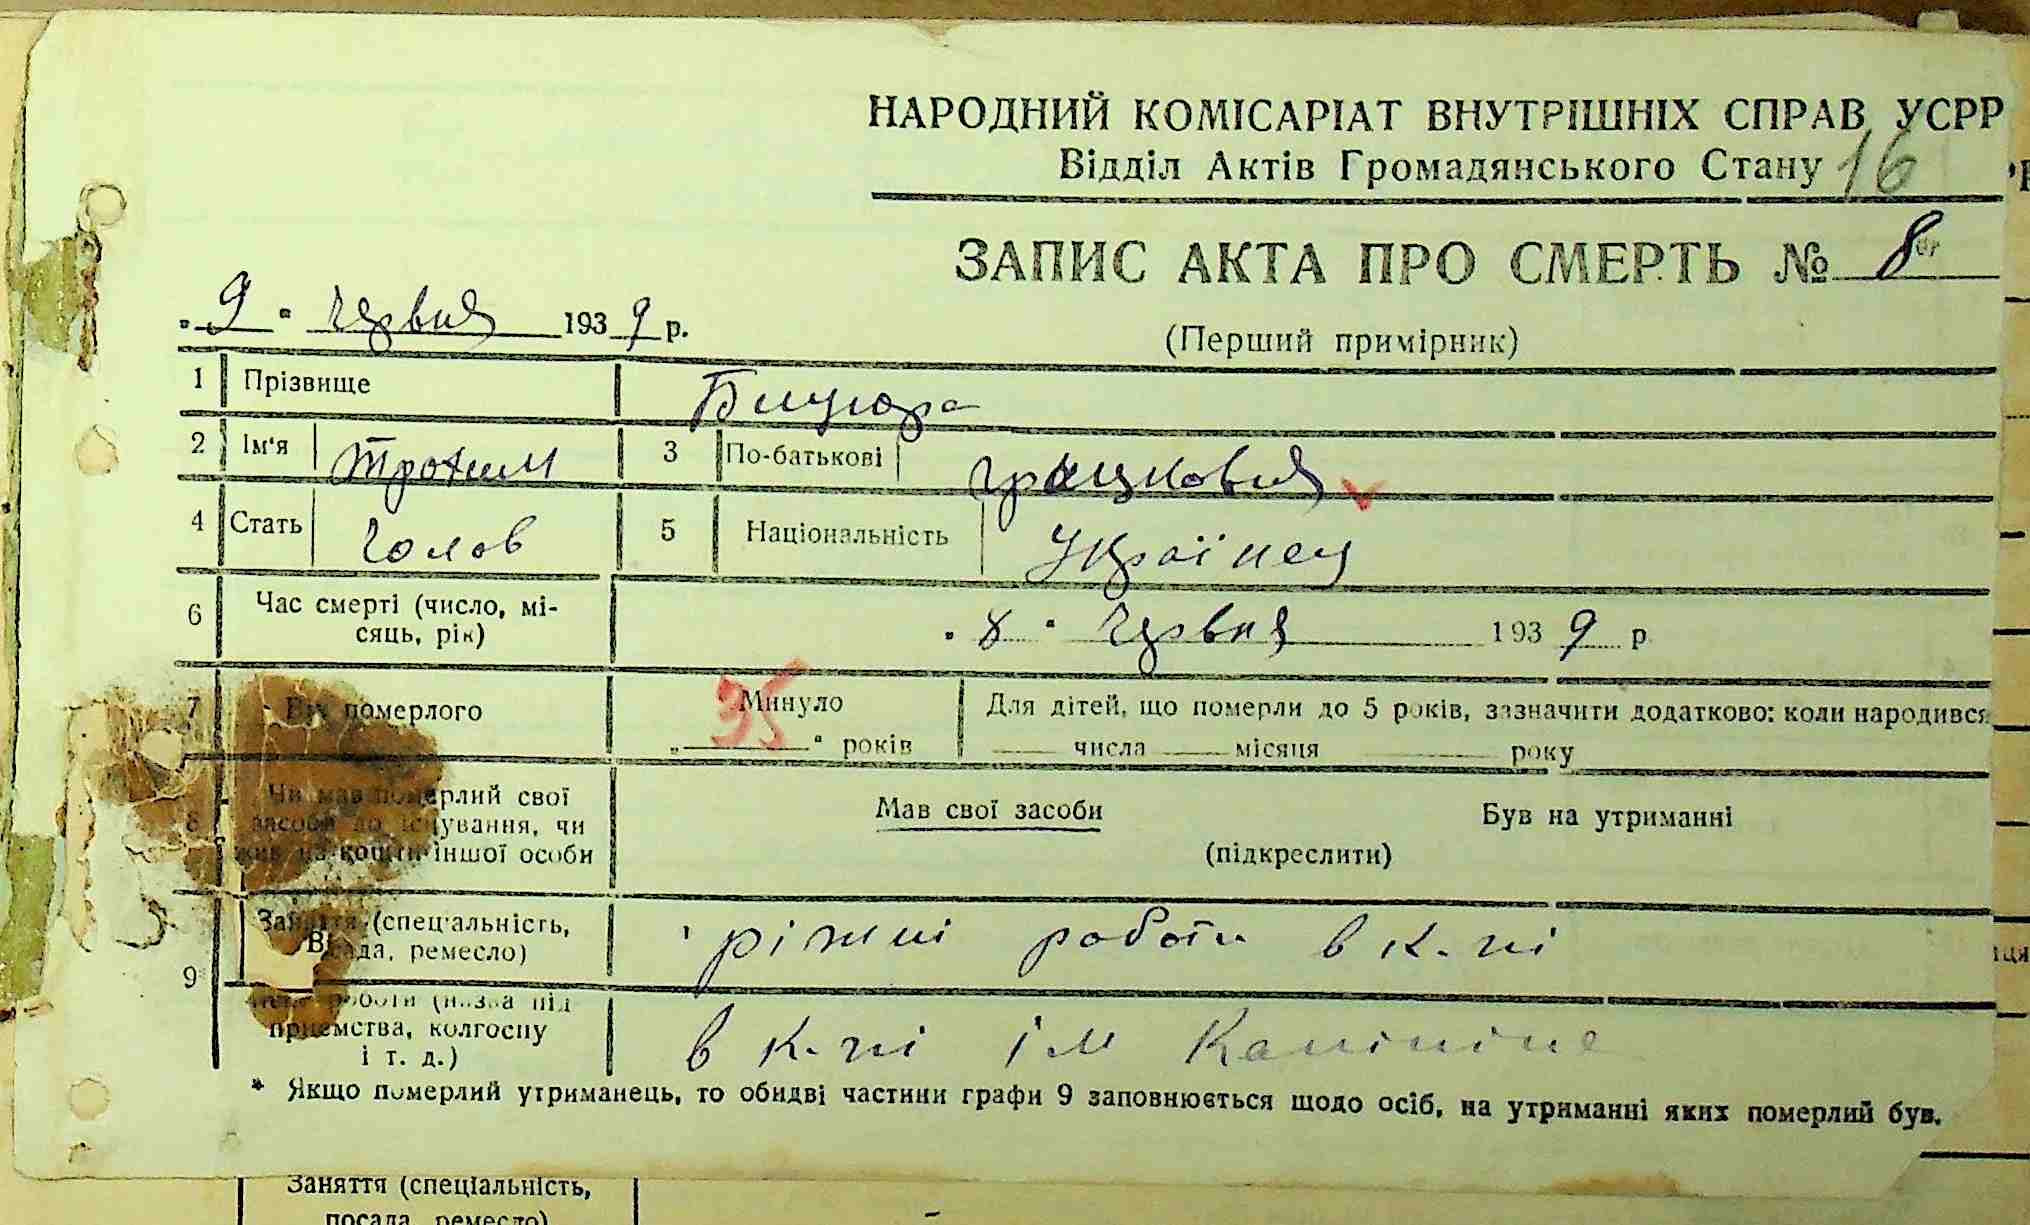 НАРОДНИЙ КОМІСАРІАТ ВНУТРІШНІХ СПРАВ УСРР
Відділ Актів Громадянського Стану 16
ЗАПИС АКТА ПРО СМЕРТЬ № 8
„ 9 " червня 1939 р.
(Перший примірник)
1 Прізвище
2 Ім'я Трохим 3 По-батькові
4 Стать Чолов 5 Національність Українец
6 Час смерті (число, мі-
сяць, рік)
„ 8 " червня 1939 р
7 Вік померлого Минуло 35 „ " років
Для дітей, що померли до 5 років, зазначити додатково: коли народився
числа місяця року
8 Чи мав померлий свої
засоби до існування, чи
жив на кошти іншої особи
Мав свої засоби Був на утриманні
(підкреслити)
9 Заняття (спеціальність,
посада, ремесло)
ріжні роботи в к-пі
роботи (назва під
приємства, колгоспу
і т. д.)
в к-пі ім Калініна
* Якщо померлий утриманець, то обидві частини графи 9 заповнюється щодо осіб, на утриманні яких померлий був.
Заняття (спеціальність,
посада, ремесло)